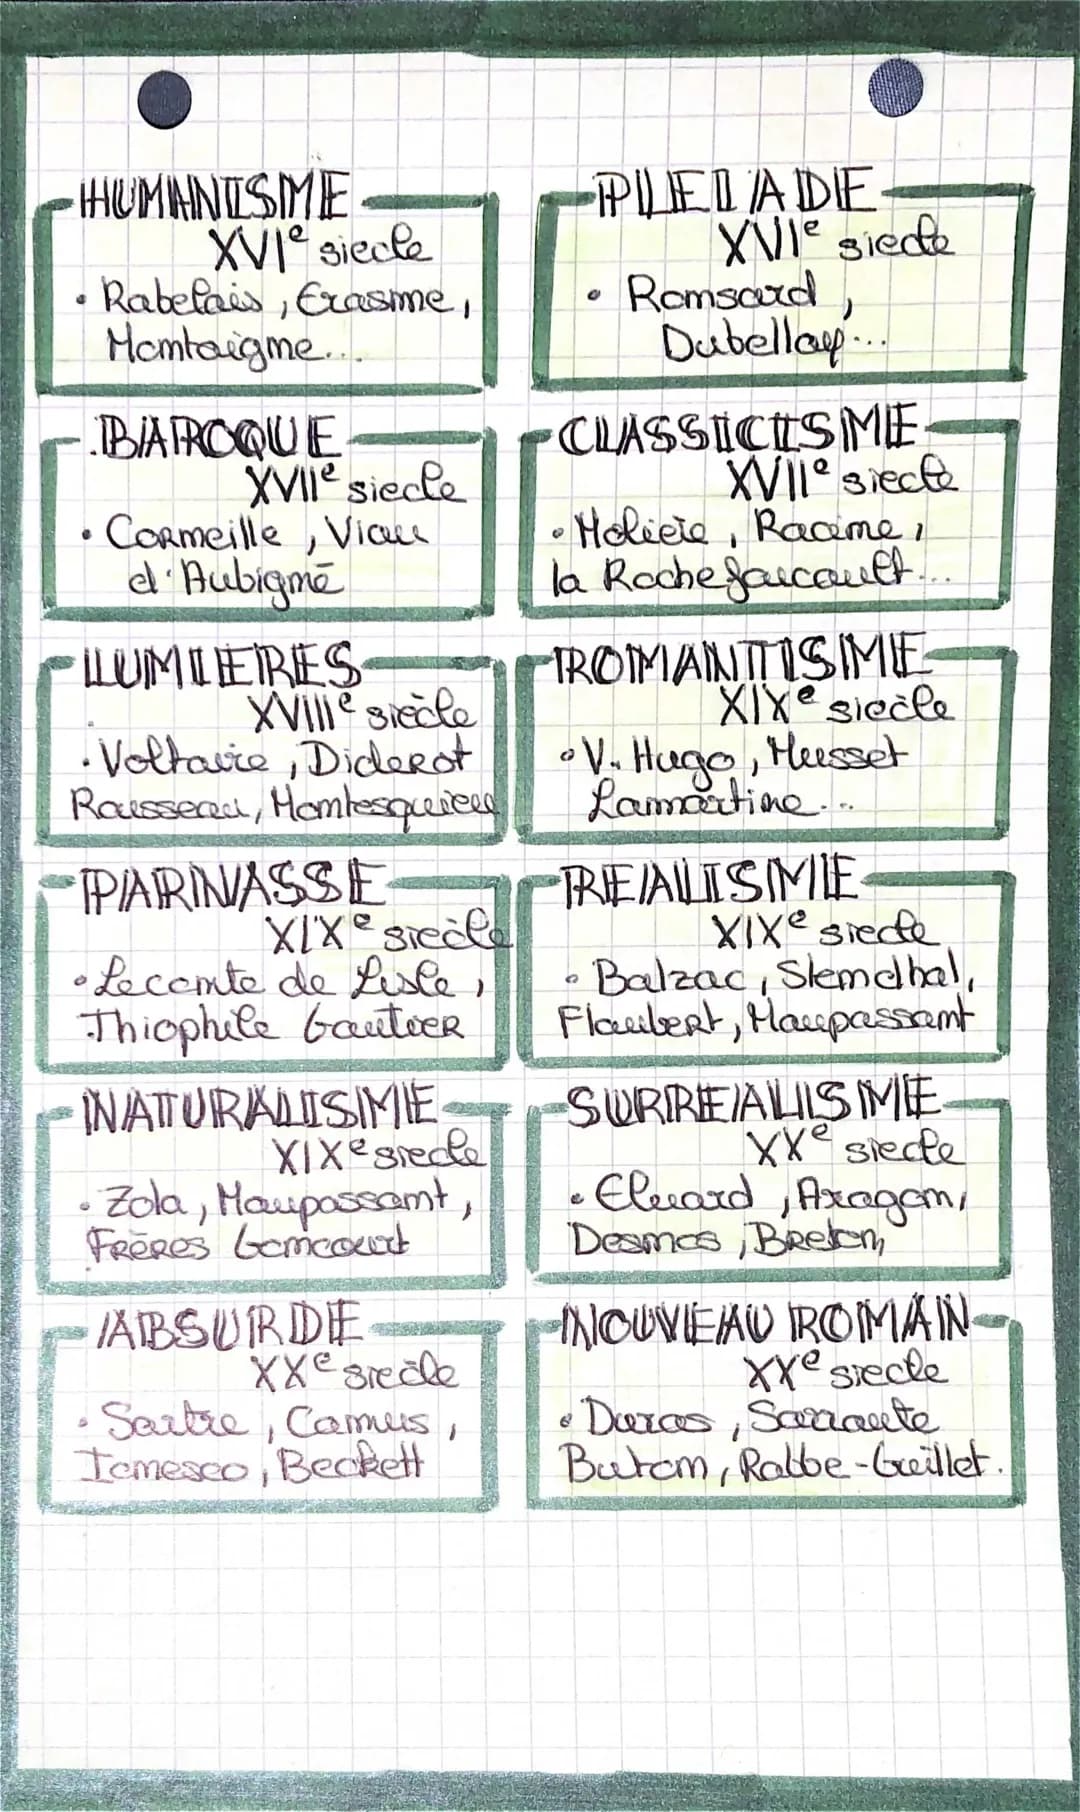 HUMANISME
XVIe siecle
• Rabelais, Erasme,
Montaigne...
PLEIADE
XVIe siecle
• Ronsard,
Dubellay...
BAROQUE
XVIIe siecle
• Corneille, Viau
d'Aubigné
CLASSICISME
XVIIe siecle
• Moliere, Racine,
la Rochefoucault...
LUMIERES
XVIIIe siècle
• Voltaire, Diderot
Rousseau, Montesquieu
ROMANTISME
XIXe siecle
• V. Hugo, Musset
Lamartine...
PARNASSE
XIXe siecle
• Leconte de Lisle,
Thiophile Gautier
REALISME
XIXe siecle
• Balzac, Stendhal,
Flaubert, Maupassant
NATURALISME
XIXe siecle
• Zola, Maupassant,
Frères Goncourt
SURREALISME
XXe siecle
• Eluard, Aragon,
Desnos, Breton,
ABSURDE
XXe siecle
• Sartre, Camus,
Ionesco, Beckett
NOUVEAU ROMAN
XXe siecle
• Duras, Sarraute
Butom, Robbe-Grillet.